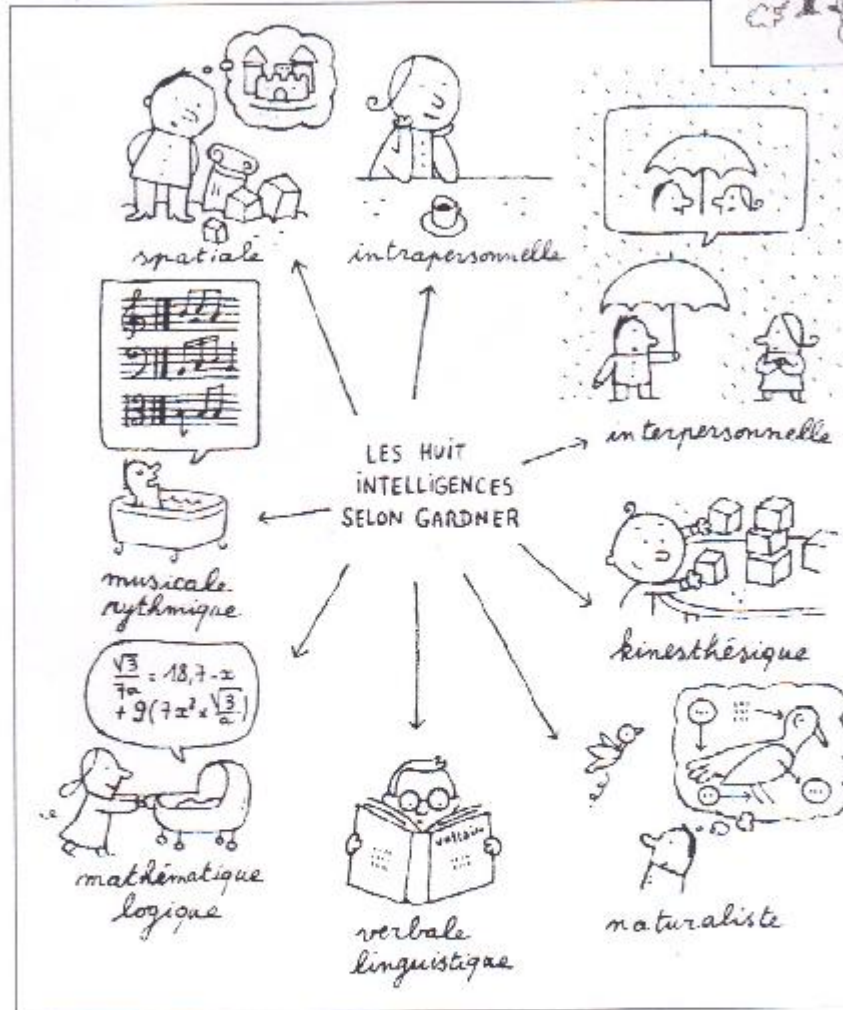 spatiale
intrapersonnelle
interpersonnelle
LES HUIT
INTELLIGENCES
SELON GARDNER
musicale
rythmique
kinesthésique
√3/7a = 18,7-x
+ 9(7x² x √3/a)
mathématique
logique
voltaire
verbale
linguistique
naturaliste